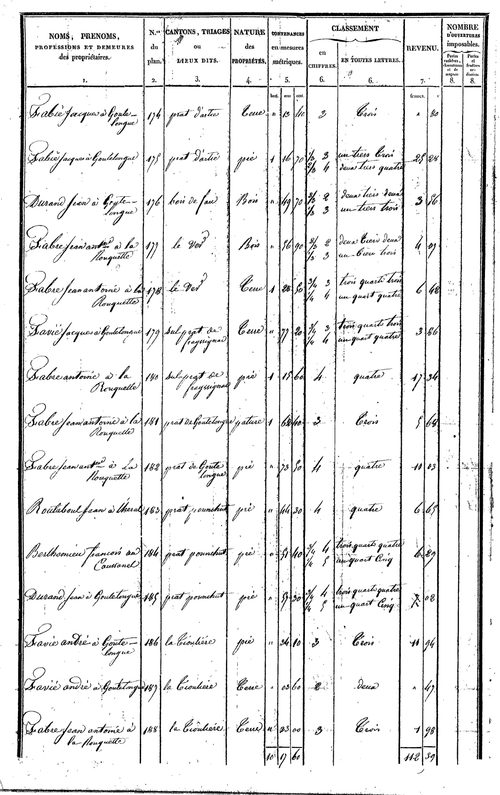 NOMS, PRENOMS, PROFESSIONS ET DEMEURES des propriétaires. | N.os du plan. | CANTONS, TRIAGES ou LIEUX DITS. | NATURE des PROPRIÉTÉS. | CONTENANCES en mesures métriques | CLASSEMENT en CHIFFRES. | EN TOUTES LETTRES. | REVENU. | NOMBRE D'OUVERTURES imposables.
1. 2. 3. 4. 5. 6. 6. 7. 8. 8.
jacques à Goute-longue 174 prat d'artie Terre " 13 40 3 Trois " 80
jacques à Goutelongue 175 prat d'artie pré 1 16 70 1/3 3 2/3 4 un tiers trois deux tiers quatre 25 28
Durand jean à Goute-longue 176 bois de Bois " 49 70 2/3 2 1/3 3 deux tiers deux un tiers trois 3 56
Fabre jean ant.ne à la Rouquette 177 le Bois " 56 90 2/3 2 1/3 3 deux tiers deux un tiers trois 4 07
Fabre jean antoine à la Rouquette 178 le Terre 1 28 50 3/4 3 1/4 4 trois quarts trois un quart quatre 6 42
jacques à Goutelongue 179 sul prat de Terre " 77 20 3/4 3 1/4 4 trois quarts trois un quart quatre 3 86
Fabre antoine à la Rouquette 180 sul prat de pré 1 15 60 4 quatre 17 34
Fabre jean antoine à la Rouquette 181 prat de Goutelongue pature 1 62 40 3 Trois 5 68
Fabre jean ant.ne à La Rouquette 182 prat de Goute longue pré " 73 50 4 quatre 11 03
Roulaboul jean à 183 prat pounchut pré " 44 30 4 quatre 6 65
Berthomieu francois au Caussanel 184 prat pounchut pré " 51 40 3/4 4 1/4 5 trois quarts quatre un quart Cinq 6 29
Durand jean à Goutelongue 185 prat pounchut pré " 57 30 3/4 4 1/4 5 trois quarts quatre un quart Cinq 7 02
andré à Goute-longue 186 la pré " 34 10 3 Trois 11 94
andré à Goutelongue 187 la Terre " 03 60 2 deux " 47
Fabre jean antoine à la Rouquette 188 la Terre " 33 00 3 Trois 1 98
10 17 60 112 39